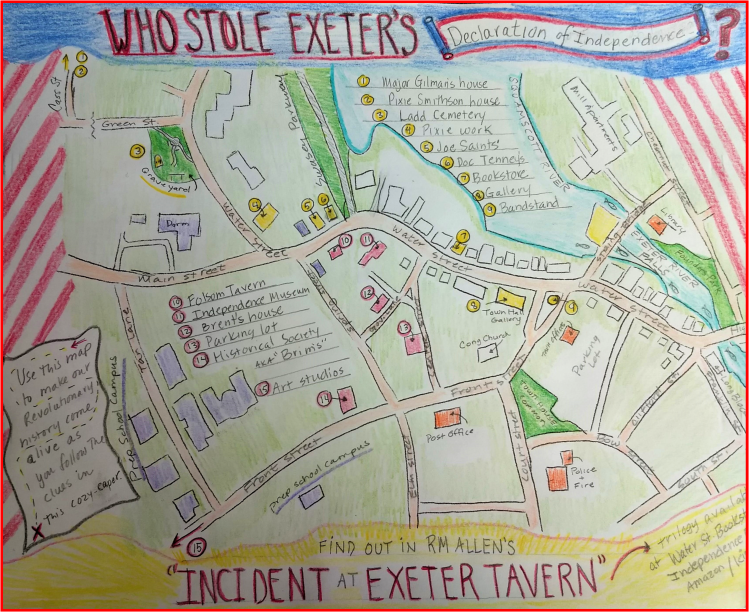 WHO STOLE EXETER'S
Declaration of Independence
?
① Major Gilmans house
② Pixie Smithson house
③ Ladd Cemetery
④ Pixie work
⑤ Joe Saints'
⑥ Doc Tenneys
⑦ Bookstore
⑧ Gallery
⑨ Bandstand
①
②
Cass St
Green St.
③
Graveyard
Dorm
Water Street
④
⑤
⑥
Swasey Parkway
SQUAMSCOTT RIVER
Mill Apartments
Library
EXETER RIVER
FALLS
String Bridge
Founders Park
Main street
Water street
⑦
⑩
⑪
⑫
⑬
⑧
Town Hall
Gallery
⑨
Water Street
Cong Church
Parking
Lot
⑩ Folsom Tavern
⑪ Independence Museum
⑫ Brent's house
⑬ Parking lot
⑭ Historical Society
AKA "Brim's"
⑮ Art studios
⑭
Tan Lane
Prep School campus
Front Street
Post Office
Elm street
Court street
Bow street
South St
Police
+
Fire
Front street
prep school campus
⑮
Use this map
to make our
Revolutionary
history come
alive as
you follow the
clues in
this cozy-caper.
X
FIND OUT IN RM ALLEN'S
"INCIDENT AT EXETER TAVERN"
trilogy
at Water St. Bookst
Independence
Amazon